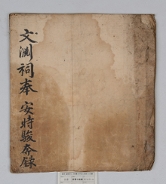 文淵祠奉安時駿奔錄